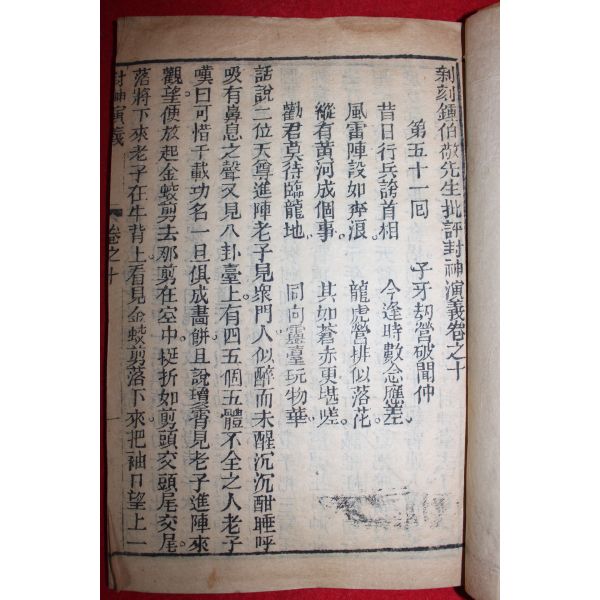 新刻鍾伯敬先生批評封神演義卷之十
第五十一回 子牙劫營破聞仲
昔日行兵誇首相 今逢時數念應差
風雷陣設如奔浪 龍虎營排似落花
縱有黃河成個事 其如蒼赤更堪嗟
勸君莫待臨龍地 同向靈臺玩物華
話說二位天尊進陣老子見衆門人似醉而未醒沉沉酣睡呼
吸有鼻息之聲又見八卦臺上有四五個五體不全之人老子
嘆曰可惜千載功名一旦俱成畫餅且說瓊霄見老子進陣來
觀望便放起金蛟剪去那剪在空中挺折如剪頭交頭尾交尾
落將下來老子在牛背上看見金蛟剪落下來把袖口望上一
封神演義 卷之十 一